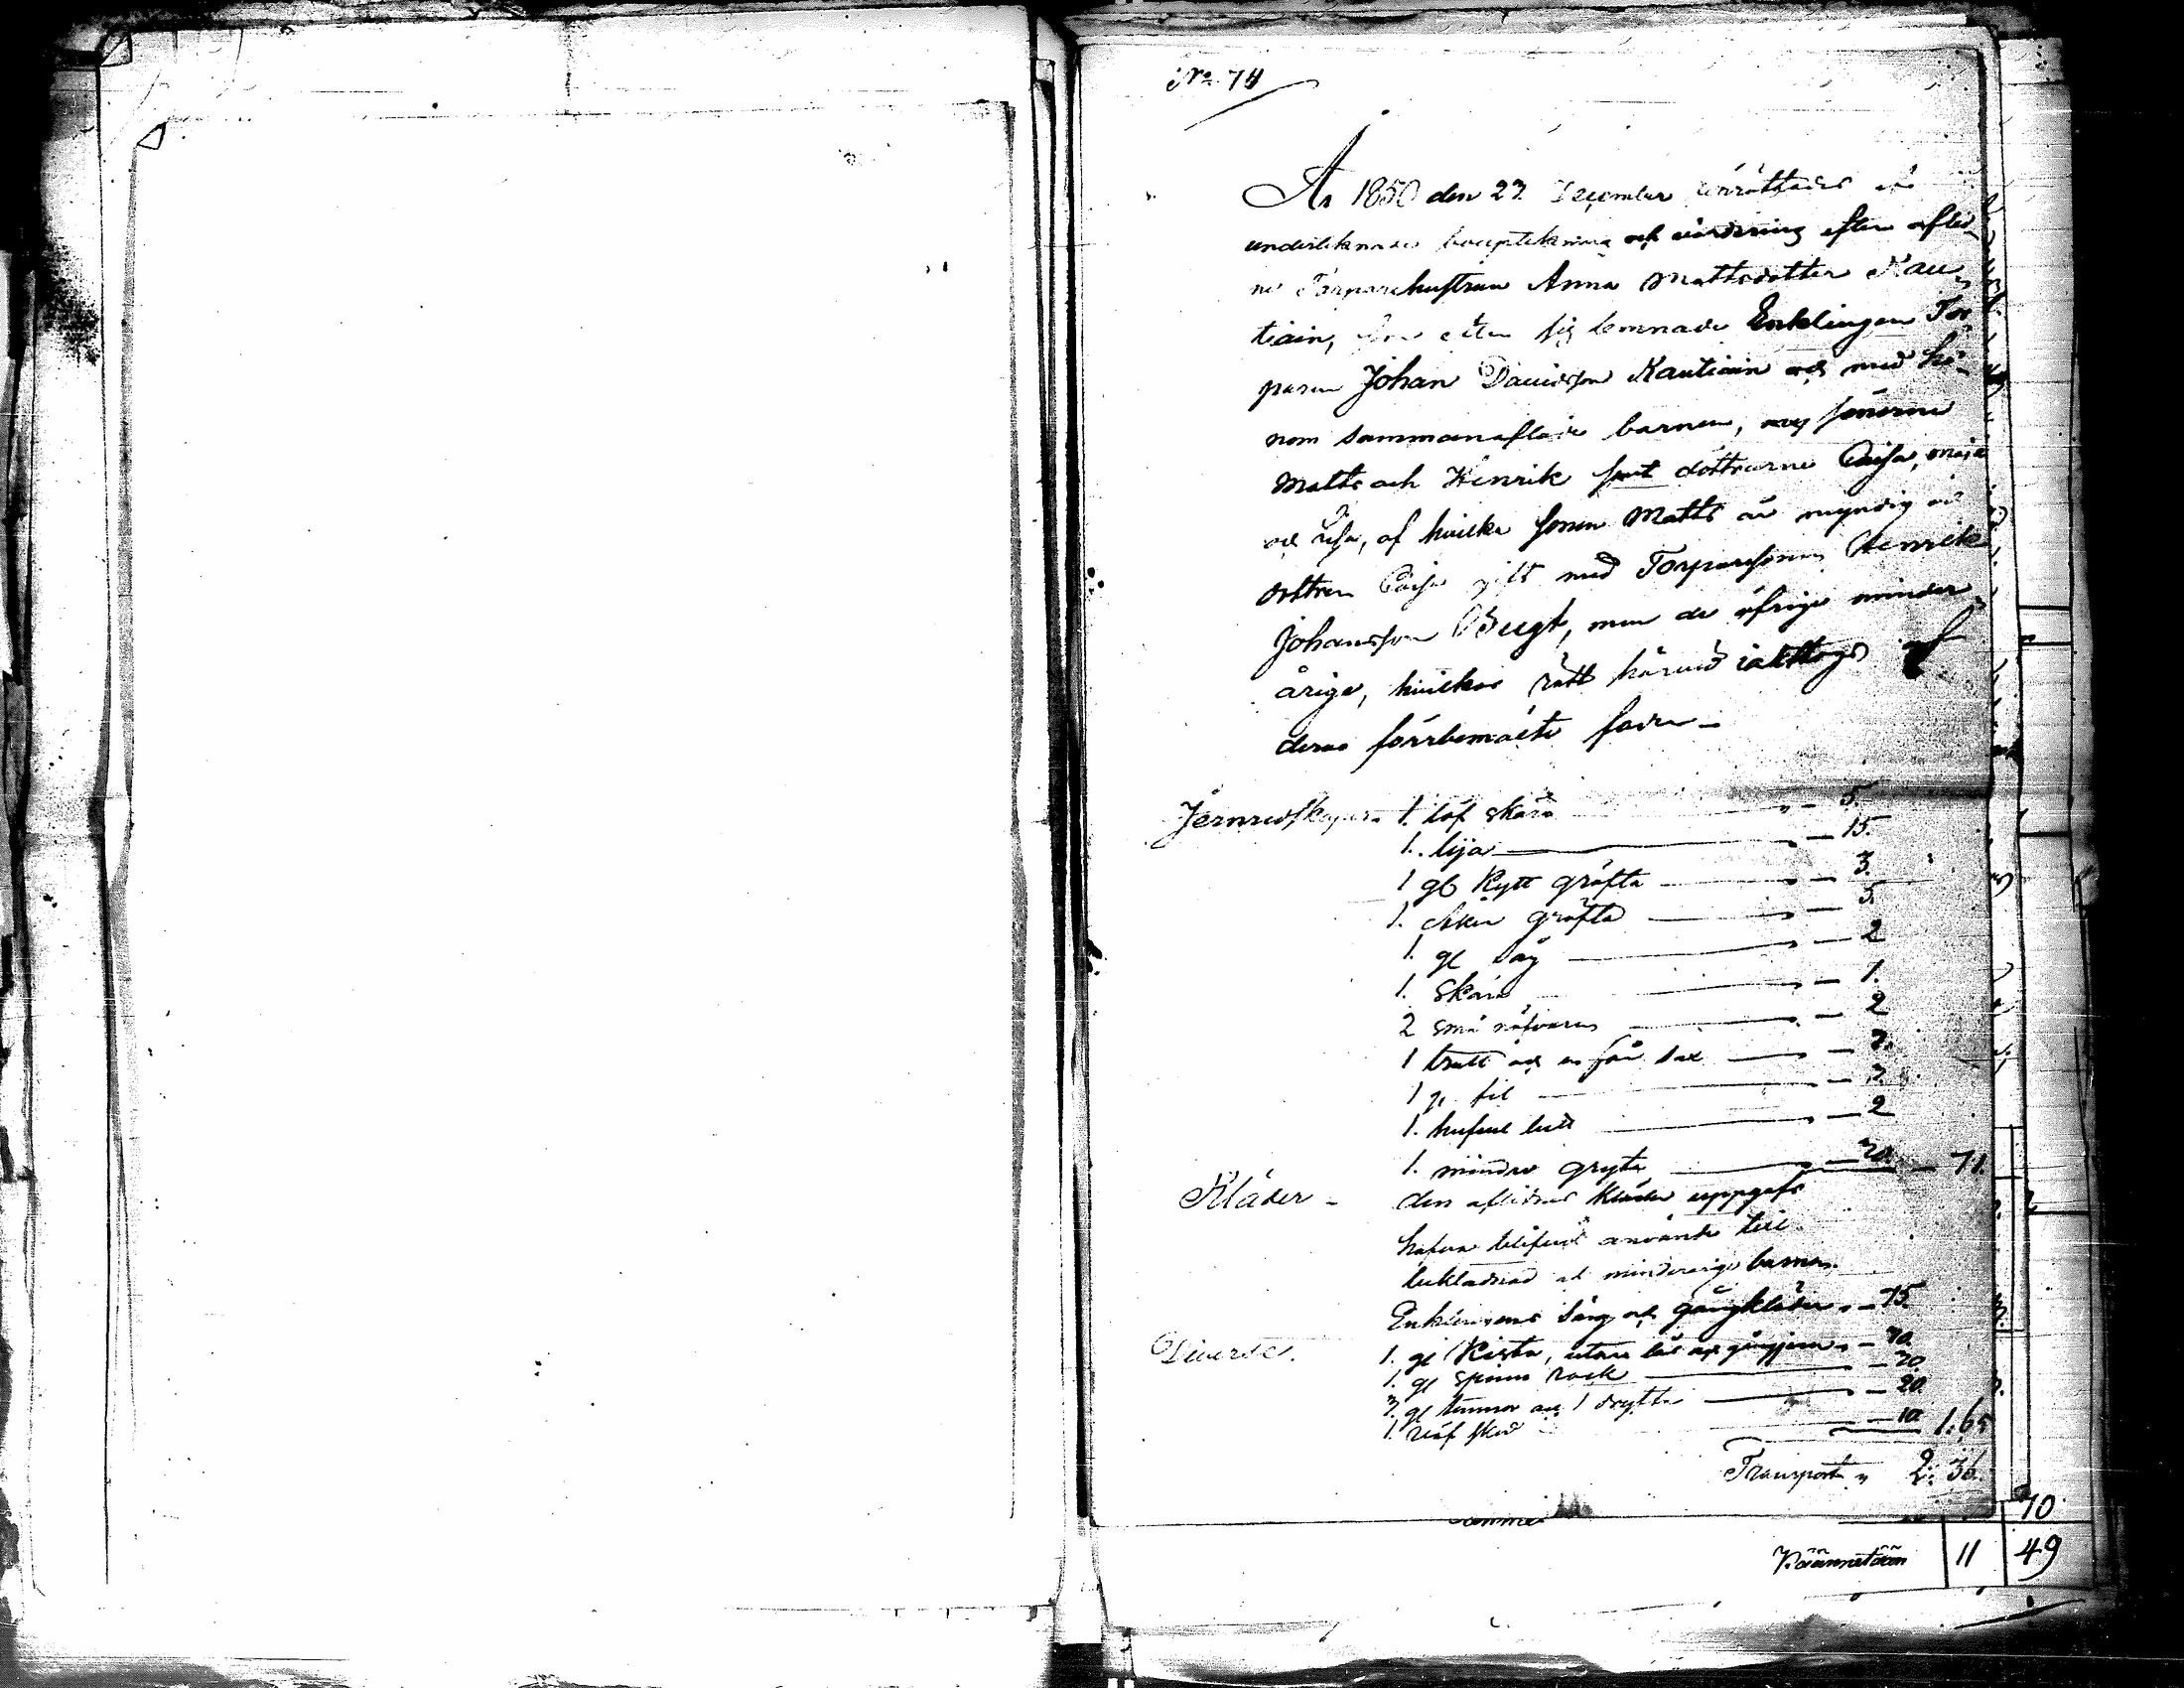 No 74
År 1850 den 27 December förrättades af
undertecknade bouptekning och värdering efter aflid_
ne Torparehustrun Anna Mattsdotter Kau_
tiain, som efter sig lemnade Enklingen Tor
paren Johan Davidsson Kautiain och med ho_
nom sammanaflade barnen, sönerne
Matts och Henrik samt döttrarne Caisa, Maja
och, af hvilka sonen Matts är myndig och
dottren Caisa gift med Torparesonen Henrik
Johansson Bugt, men de öfrige minder_
årige, hvilkas rätt härvid iakttogs af
deras förrbemälte fader_
Jernredskaper 1. löf skära " — 5.
1. lija " — 15.
1 gl Kytt gräfta " — 3.
1. Åker gräfta " — 5.
1. gl såg " — 2
1. Skära " — 1.
2 små näfvare " — 2
1 tratt och en får sax " —
1 gl fil " —
1. " — 2
1. mindre gryta " — — 71.
Kläder - den aflidnas kläder uppgafs
hafva blifvit använde till
beklädnad åt minderårige barnen.
Enklingens säng och gångkläder " — 75.
Diverse. 1. gl Kista, utan lås och gångjern " —
1. gl spinn rock — 20.
3. gl tunnor och 1 drytta — 20.
1. — 10 1:65
Transport " 2: 36.
70
Käännetään 11 49